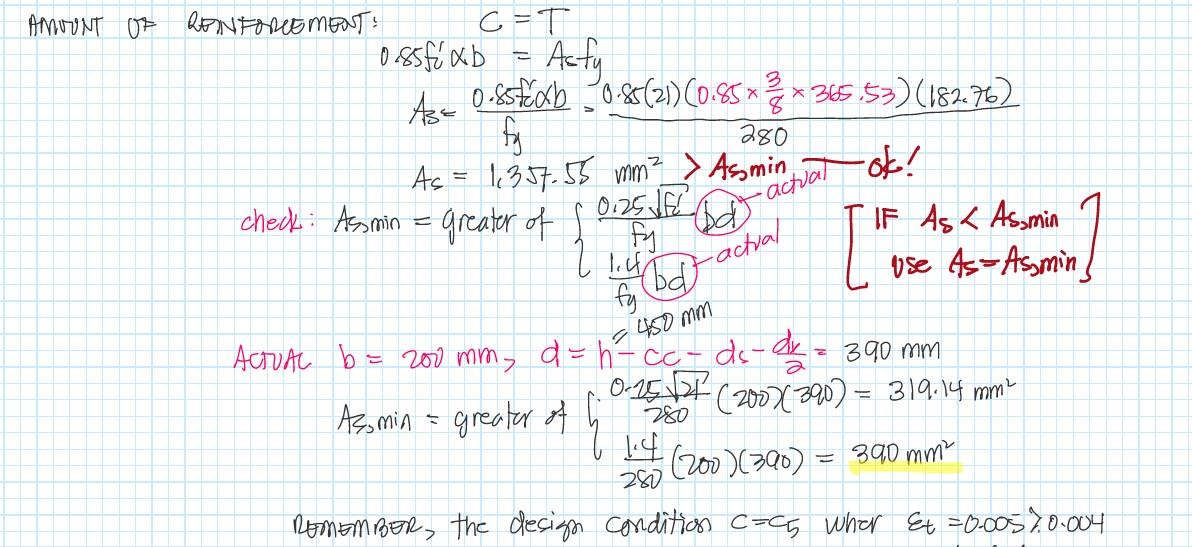 AMOUNT OF REINFORCEMENT: C = T
0.85fc' αb = Asfy
As = 0.85fc'αb / fy = 0.85(21)(0.85 × 3/8 × 365.53)(182.76) / 280
As = 1,357.55 mm² > As,min — ok!
check: As,min = greater of { 0.25√fc' / fy bd - actual
1.4 / fy bd - actual
[IF As < As,min
use As = As,min]
= 450 mm
ACTUAL b = 200 mm, d = h - cc - ds - db/2 = 390 mm
As,min = greater of { 0.25√21 / 280 (200)(390) = 319.14 mm²
1.4 / 280 (200)(390) = 390 mm²
REMEMBER, the design condition C = C5 wher εt = 0.005 > 0.004